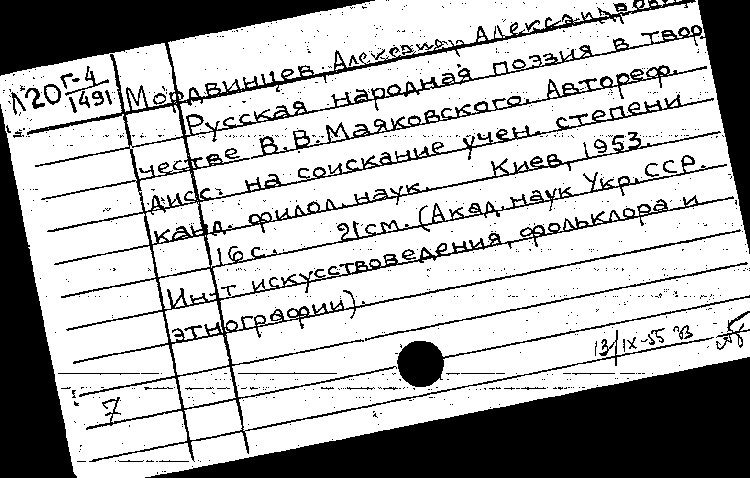 Л20 Г-4
1491
Мордвинцев, Александр Александрович
Русская народная поэзия в твор
честве В.В.Маяковского. Автореф.
дисс. на соискание учен. степени
канд. филол. наук. Киев, 1953.
16с. 21см. (Акад. наук Укр.ССР.
Ин-т искусствоведения, фольклора и
этнографии).
13/IX-55
7